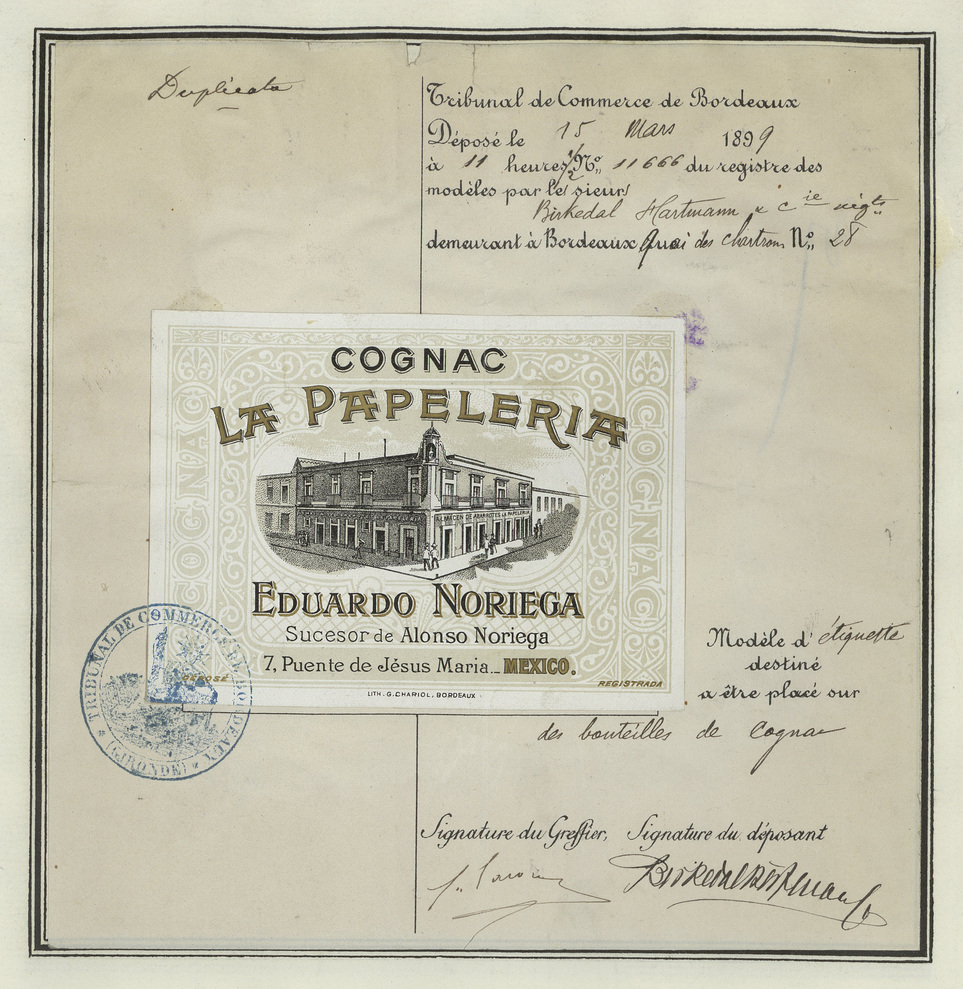 Duplicata
Tribunal de Commerce de Bordeaux
Déposé le 15 Mars 1899
à 11 heures 1/2 No. 11666 du registre des
modèles par les sieurs
Birkedal Hartmann & Cie négts
demeurant à Bordeaux Quai des Chartrons No. 28
COGNAC
LA PAPELERIA
COGNAC
COGNAC
ALMACEN DE ABARROTES LA PAPELERIA
EDUARDO NORIEGA
Sucesor de Alonso Noriega
7, Puente de Jésus Maria.. MEXICO.
DEPOSÉ
REGISTRADA
LITH. G. CHARIOL. BORDEAUX
TRIBUNAL DE COMMERCE DE BORDEAUX
(GIRONDE)
Modèle d'étiquette
destiné
a être placé sur
des bouteilles de Cognac
Signature du Greffier, Signature du déposant